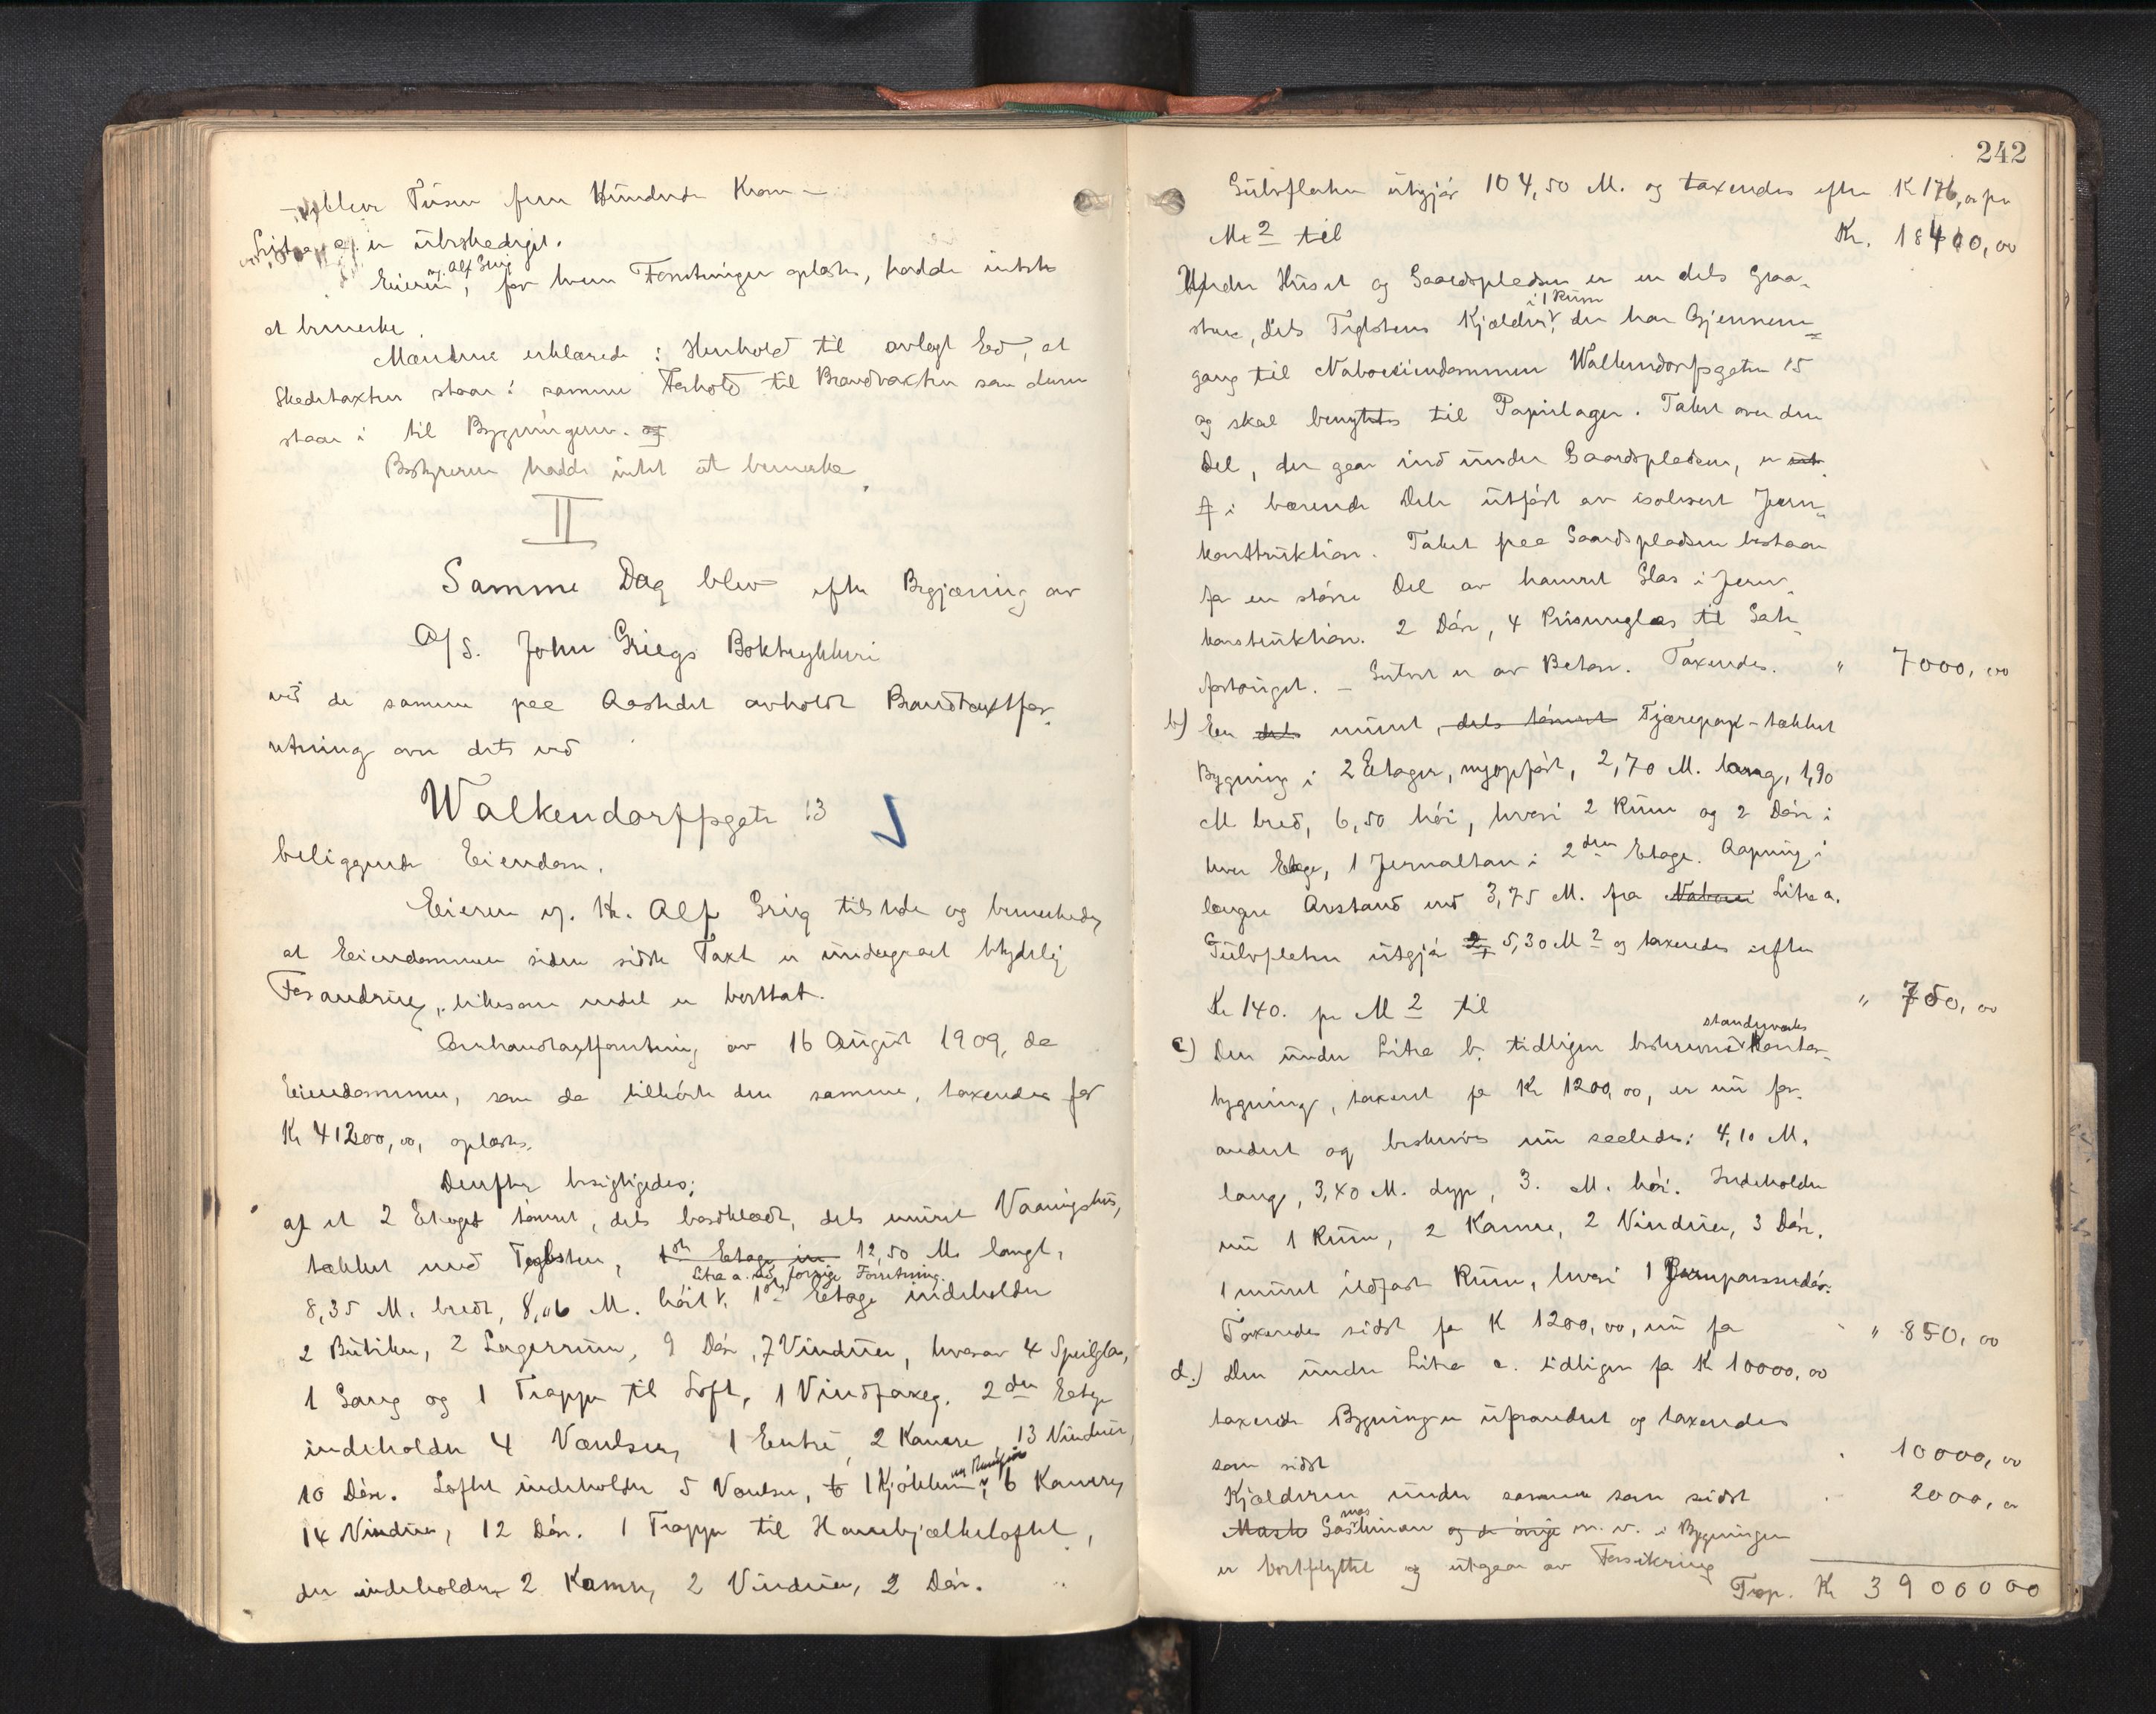 Tusen fem Hundrede Kroner —
Litra a. er ubeskediget.
Eieren, v. Alf Grieg for hvem Forretningen oplæstes, hadde intet
at bemerke.
Mændene erklærede i Henhold til avlagt Eed, at
Skedetaxten staar i samme Forhold til Brandtaxten som denne
staar i til Bygningen. og
Bestyreren hadde intet at bemerke.
II
Samme Dag blev efter Begjæring av
A/S. John Griegs Boktrykkeri
ved de samme paa Aastedet avholdt Brandtaxtfor-
retning over dets ved
Walkendorffsgate 13
beliggende Eiendom.
Eieren v. Hr. Alf Grieg tilstede og bemerkede,
at Eiendommen siden sidste Taxt er undergaaet betydelig
Forandring, likesom endel er borttat.
Ombrandtaxtforretning av 16 August 1909, da
Eiendommen, som da tilhørte den samme, taxeredes for
Kr 41200,00, oplæstes.
Derefter besigtigedes:
a) et 2 Etages tømret, dels bordklædt, dels muret Vaaningshus,
tækket med Teglsten, 1ste Etage in 12,50 M. langt,
8,35 M. bredt, 8,06 M. høit, Litra a. ved forrige Forretning. 1ste Etage indeholder
2 Butiker, 2 Lagerrum, 9 Døre, 7 Vinduer, hvorav 4 Speilglas,
1 Gang og 1 Trappe til Loft, 1 Vindfang. 2den Etage
indeholder 4 Værelser, 1 Entré, 2 Kamre, 13 Vinduer,
10 Døre. Loftet indeholder 5 Værelser, 1 Kjøkken, 6 Kamre,
14 Vinduer, 12 Døre. 1 Trappe til Hanebjælkeloftet,
der indeholder 2 Kamre, 2 Vinduer, 2 Døre.
242
Gulvflaten utgjør 104,50 M. og taxeredes efter K 176,00 pr
M2 til Kr. 18400,00
Under Huset og Gaardspladsen er en dels Graa-
stens, dels Teglstens Kjælder, i 1 Rum der har Gjennem-
gang til Naboeiendommen Walkendorfsgaten 15
og skal benyttes til Papirlager. Taket over den
Del, der gaar ind under Gaardspladsen, er ut-
f i bærende Dele utført av isolert Jern-
konstruktion. Taket paa Gaardspladsen bestaar
for en større Del av hamret Glas i Jern-
konstruktion. 2 Døre, 4 Prismeglas til Gate-
fortauget. — Gulvet er av Beton. Taxeredes. " 7000,00
b) En dels muret, dels tømret Tjærepap-tækket
Bygning i 2 Etager, nyopført, 2,70 M. lang, 1,90
M bred, 6,50 høi, hvori 2 Rum og 2 Døre i
hver Etage, 1 Jernaltan i 2den Etage. Aapning i
længre Avstand end 3,75 M. fra Naboei Litra a.
Gulvflaten utgjør 2, 5,30 M2 og taxeredes efter
Kr 140. pr M2 til " 750,00
c) Den under Litra b. tidligere beskrevne standværks Kontor-
bygning, taxeret for Kr 1200,00, er nu for-
andret og beskrives nu saaledes: 4,10 M.
lang, 3,40 M. dyp, 3. M. høi. Indeholder
nu 1 Rum, 2 Kamre, 2 Vinduer, 3 Døre,
1 muret ildfast Rum, hvori 1 Jernpanserdør.
Taxeredes sidst for K 1200,00, nu for " 850,00
d.) Den under Litra c. tidligere for Kr 10000,00
taxerede Bygning er uforandret og taxeredes
som sidst 10000,00
Kjælderen under samme som sidst 2000,00
Mask Gasmaskinen og de øvrige m. v. i Bygningen
er bortflyttet og utgaar av Forsikring
Trsp. Kr 3900000